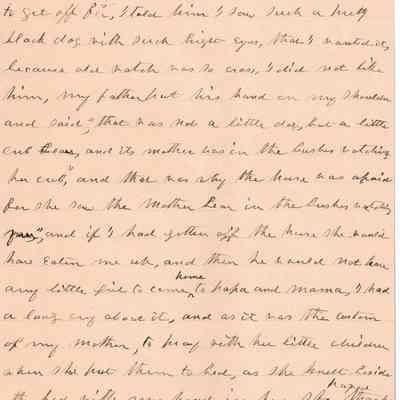 to get off for, I told him I saw such a pretty
black dog with such bright eyes, that I wanted it,
because old watch was so cross, I did not like
him, my father put his hand on my shoulder
and said, "that was not a little dog, but a little
cub bear, and its mother was in the bushes watching
her cub," and that was why the horse was afraid
for she saw the Mother bear in the bushes watching
and if I had gotten off the horse she would
have eaten me up, and then he would not have
any little girl to come home, to papa and mama, I had
a long cry about it, and as it was the custom
of my mother, to pray with her little children
when she put them to bed, as she knelt beside
the bed with